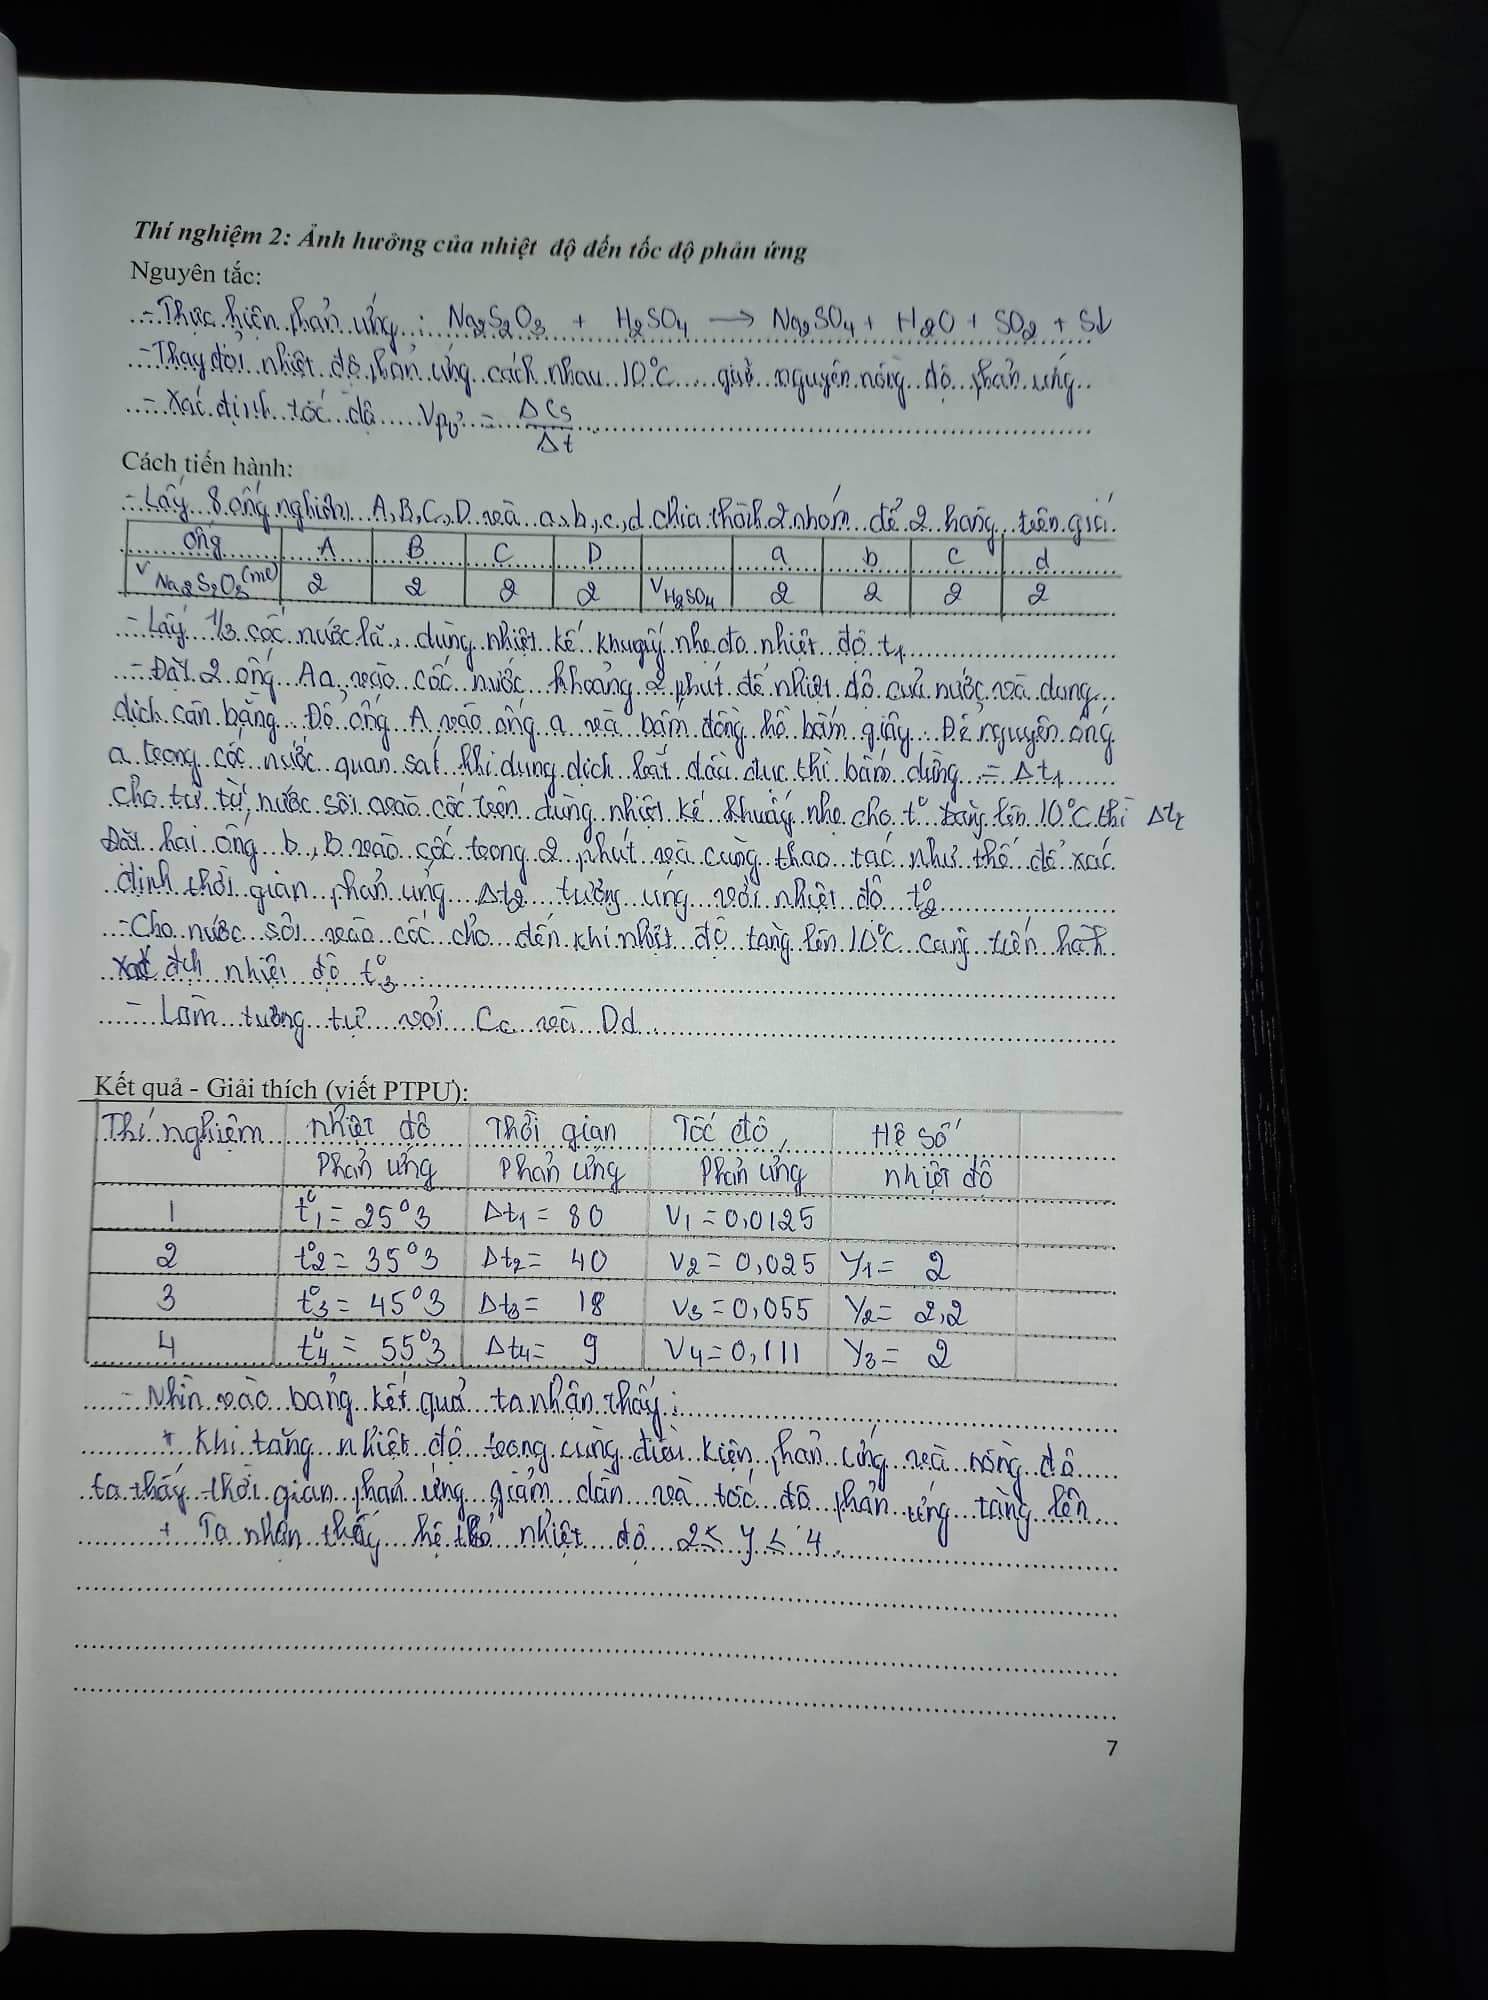 Thí nghiệm 2: Ảnh hưởng của nhiệt độ đến tốc độ phản ứng
Nguyên tắc:
- Thực hiện phản ứng : Na2S2O3 + H2SO4 → Na2SO4 + H2O + SO2 + S↓
- Thay đổi nhiệt độ phản ứng cách nhau 10°C giữ nguyên nồng độ phản ứng
- Xác định tốc độ Vpư = ΔCs/Δt
Cách tiến hành:
- Lấy 8 ống nghiệm A, B, C, D và a, b, c, d chia thành 2 nhóm để 2 hàng trên giá
ống A B C D a b c d
V Na2S2O3 (ml) 2 2 2 2 V H2SO4 2 2 2 2
- Lấy 1/3 cốc nước lã, dùng nhiệt kế khuấy nhẹ đo nhiệt độ t1
- Đặt 2 ống Aa vào cốc nước khoảng 2 phút để nhiệt độ của nước và dung
dịch cân bằng. Đổ ống A vào ống a và bấm đồng hồ bấm giây. Để nguyên ống
a trong cốc nước quan sát khi dung dịch bắt đầu đục thì bấm dừng = Δt1
cho từ từ nước sôi vào cốc trên dùng nhiệt kế khuấy nhẹ cho t° tăng lên 10°C thì Δt2
Đặt hai ống b, B vào cốc trong 2 phút và cũng thao tác như thế để xác
định thời gian phản ứng Δt2 tương ứng với nhiệt độ t°2
- Cho nước sôi vào cốc cho đến khi nhiệt độ tăng lên 10°C cũng tiến hành
xác định nhiệt độ t°3
- Làm tương tự với Cc và Dd
Kết quả - Giải thích (viết PTPƯ):
Thí nghiệm nhiệt độ Thời gian Tốc độ Hệ số
phản ứng phản ứng phản ứng nhiệt độ
1 t°1 = 25°3 Δt1 = 80 V1 = 0,0125
2 t°2 = 35°3 Δt2 = 40 V2 = 0,025 y1 = 2
3 t°3 = 45°3 Δt3 = 18 V3 = 0,055 y2 = 2,2
4 t°4 = 55°3 Δt4 = 9 V4 = 0,111 y3 = 2
- Nhìn vào bảng kết quả ta nhận thấy :
+ Khi tăng nhiệt độ trong cùng điều kiện phản ứng và nồng độ
ta thấy thời gian phản ứng giảm dần và tốc độ phản ứng tăng lên
+ Ta nhận thấy hệ số nhiệt độ 2 ≤ y ≤ 4
7